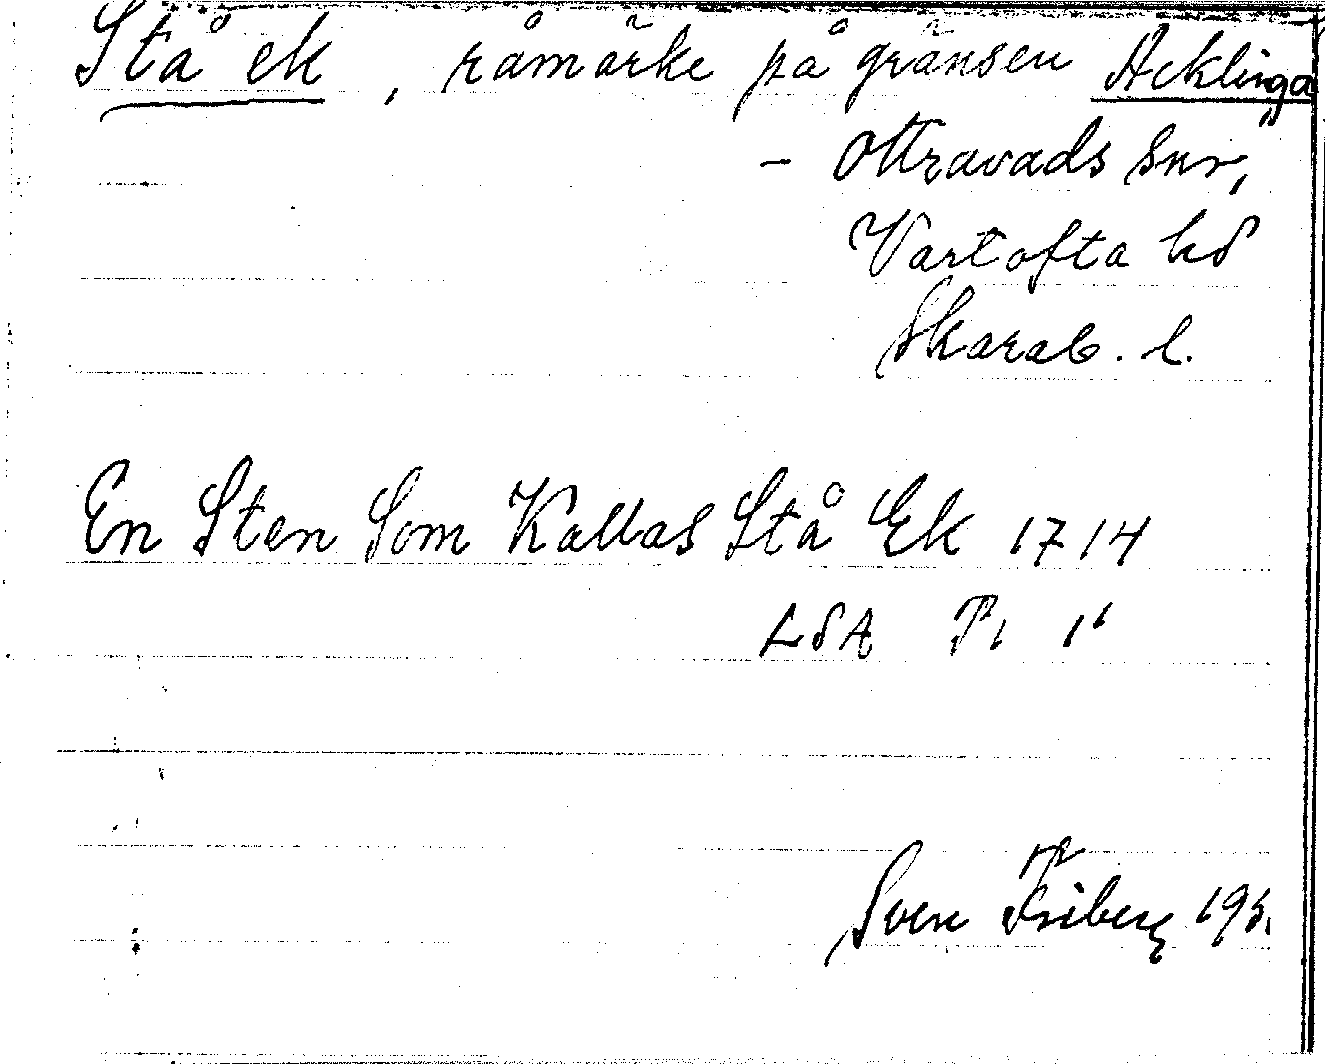 Stå ek, råmärke på gränsen Acklinga
- Ottravads snr,
Vartofta hd
Skarab. l.
En Sten Som Kallas Stå Ek 1714
LSA
Sven Friberg